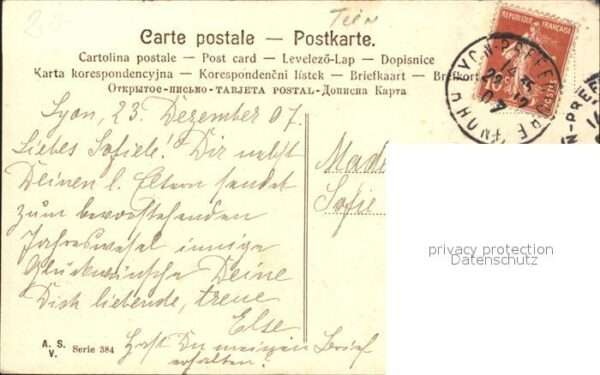 Tién
Carte postale — Postkarte.
Cartolina postale — Post card — Levelező-Lap — Dopisnice
Karta korespondencyjna — Korespondenční lístek — Briefkaart — Brefkort
Открытое-письмо-TARJETA POSTAL-Дописна Карта
REPUBLIQUE FRANÇAISE
10
LYON-PREFE
RHONE
Lyon, 23. Dezember 07.
Liebes Sofiele! Dir nebst
Deinen l. Eltern sendet
zum bevorstehenden
Jahreswechsel innige
Glückwünsche Deine
Dich liebende, treue
Else
Hast Du meinen Brief
erhalten?
Made
Sofie
A. S.
V.
Serie 384
privacy protection
Datenschutz